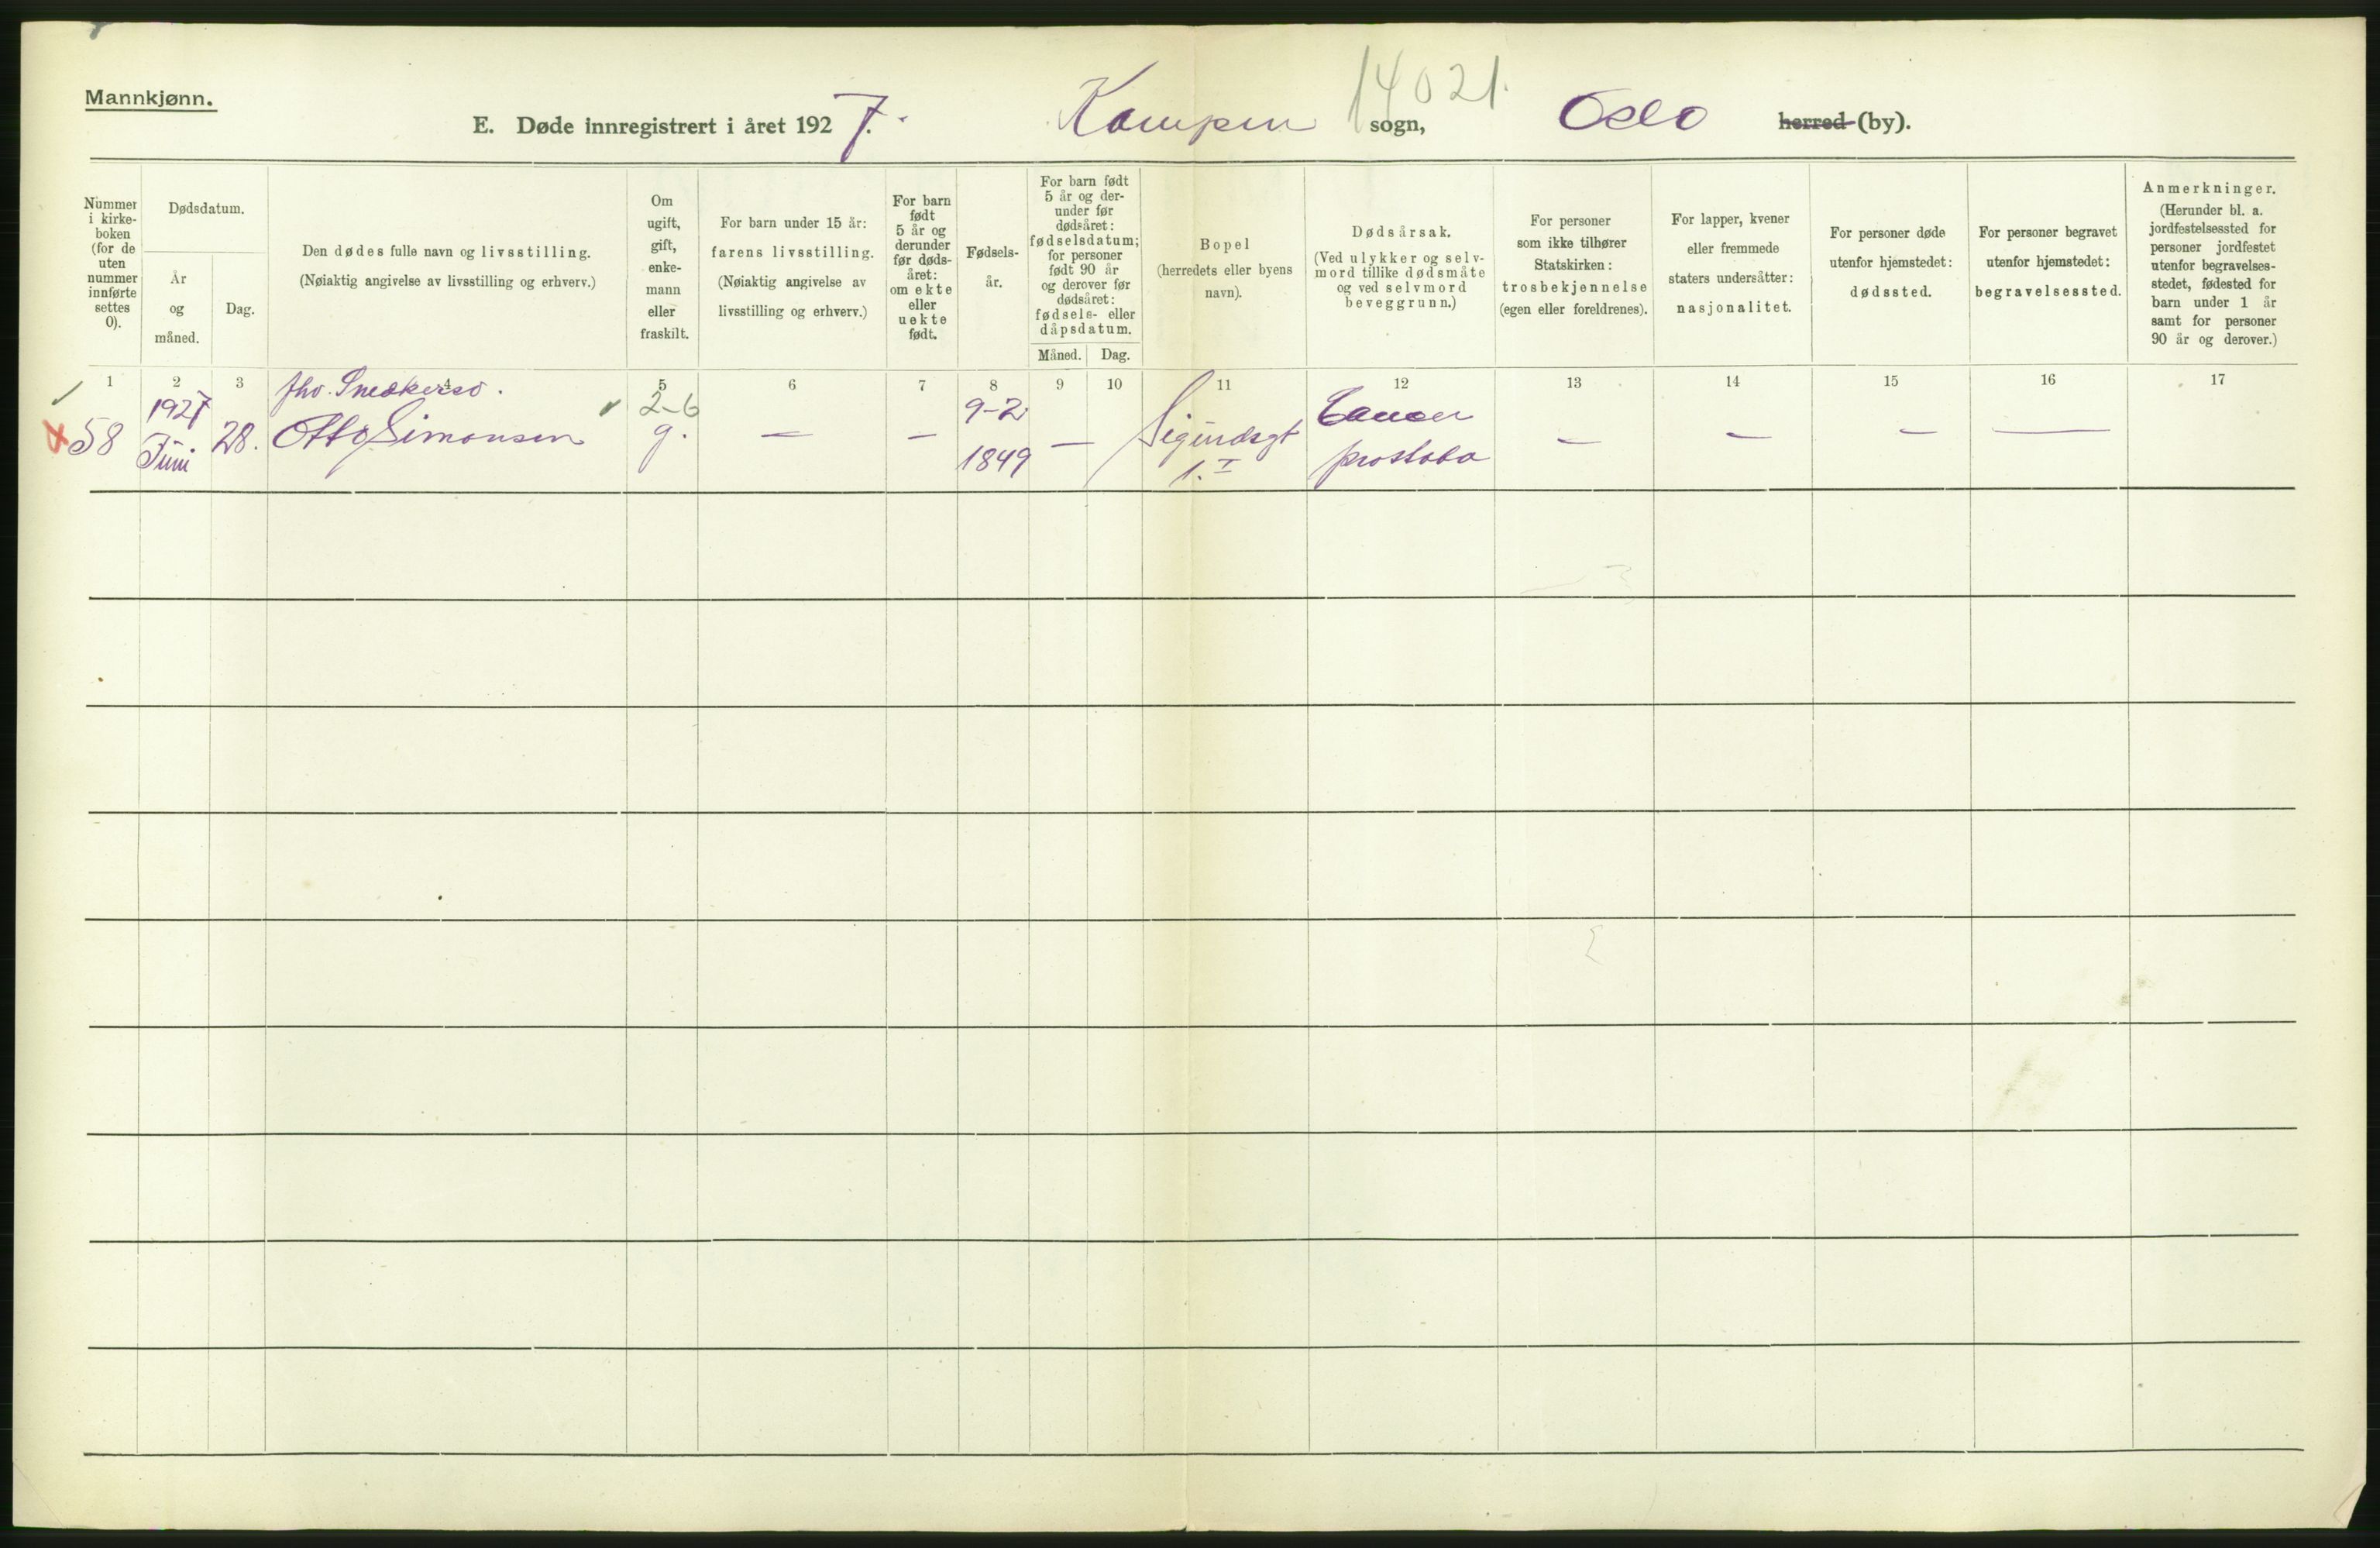 Mannkjønn.
14021.
E. Døde innregistrert i året 1927. Kampen sogn, Oslo herred (by).
Nummer i kirke-boken (for de uten nummer innførte settes 0).
Dødsdatum.
År og måned.
Dag.
Den dødes fulle navn og livsstilling.
(Nøiaktig angivelse av livsstilling og erhverv.)
Om ugift, gift, enke-mann eller fraskilt.
For barn under 15 år:
farens livsstilling.
(Nøiaktig angivelse av livsstilling og erhverv.)
For barn født 5 år og derunder før døds-året: om ekte eller uekte født.
Fødsels-år.
For barn født 5 år og der-under før dødsåret: fødselsdatum; for personer født 90 år og derover før dødsåret: fødsels- eller dåpsdatum.
Måned.
Dag.
Bopel
(herredets eller byens navn).
Dødsårsak.
(Ved ulykker og selv-mord tillike dødsmåte og ved selvmord beveggrunn.)
For personer som ikke tilhører Statskirken: trosbekjennelse (egen eller foreldrenes).
For lapper, kvener eller fremmede staters undersåtter: nasjonalitet.
For personer døde utenfor hjemstedet: dødssted.
For personer begravet utenfor hjemstedet: begravelsessted.
Anmerkninger.
(Herunder bl. a. jordfestelsessted for personer jordfestet utenfor begravelses-stedet, fødested for barn under 1 år samt for personer 90 år og derover.)
1 2 3 4 5 6 7 8 9 10 11 12 13 14 15 16 17
58
1927
Juni
28.
fhv. Snedkersv.
Otto Simonsen
2-6
g.
—
—
9-2
1849
—
1. I
Cancer
prostata
—
—
—
—